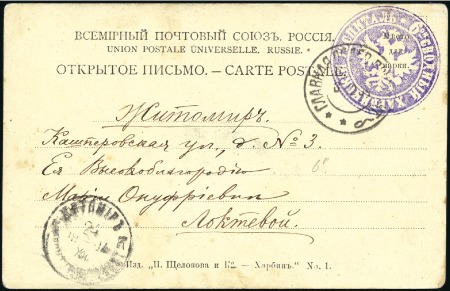 ВСЕМІРНЫЙ ПОЧТОВЫЙ СОЮЗЪ. РОССІЯ.
UNION POSTALE UNIVERSELLE. RUSSIE.
ОТКРЫТОЕ ПИСЬМО. — CARTE POSTALE.
Мѣсто
для
марки.
ГЛАВНАЯ
Житомиръ.
Кашперовская ул., д. № 3.
Ея Высокоблагородію
Маріи Онуфріевнѣ
Локтевой.
ЖИТОМИРЪ
Изд. „П. Щелокова и Кº — Харбинъ." No. 1.